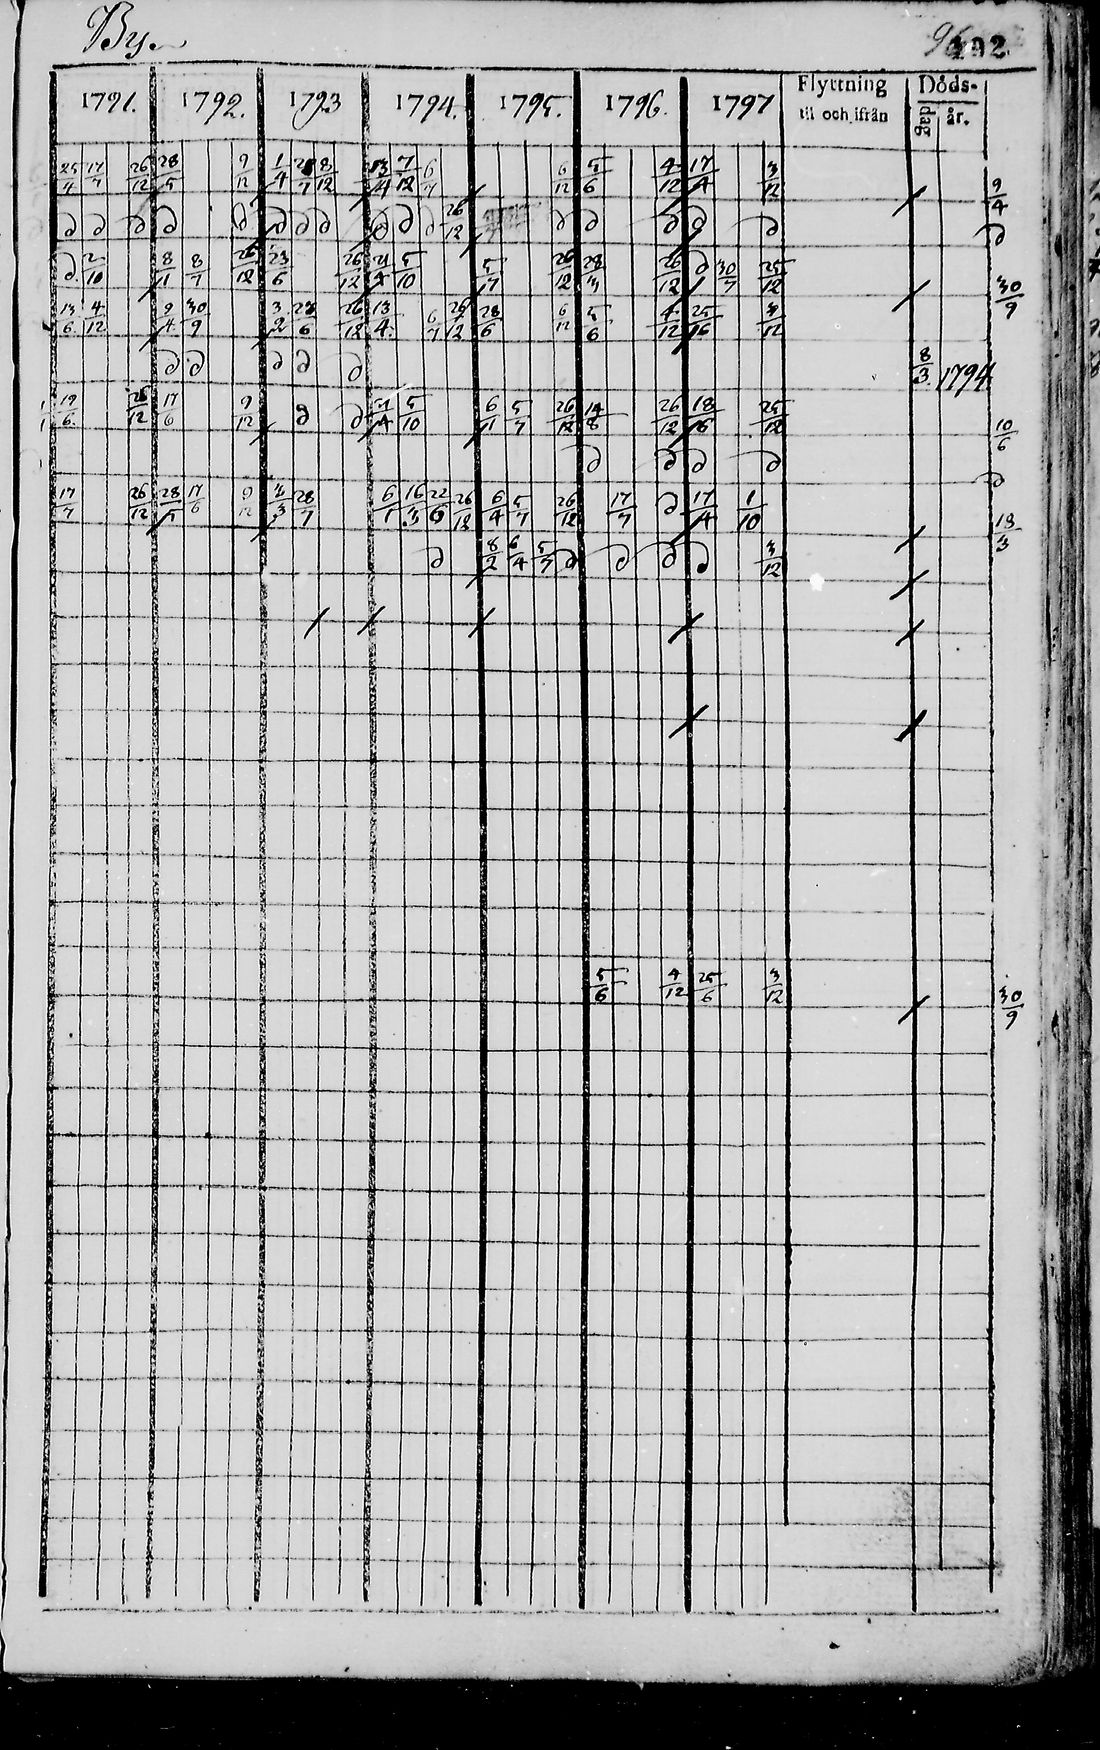 By.
102
1791. 1792. 1793 1794. 1795. 1796. 1797 Flyttning till och ifrån Döds- dag år.
25/4 17/7 26/12 28/5 9/12 1/4 8/12 13/4 7/12 6/7 6/12 5/6 4/12 17/4 3/12 9/4
∂ ∂ ∂ ∂ ∂ ∂ ∂ ∂ ∂ ∂ ∂ 26/12 ∂ ∂ ∂ ∂ ∂ ∂
∂ 2/10 8/11 8/7 26/12 23/6 26/12 5/10 26/12 28/3 26/12 ∂ 30/7 25/12 30/9
13/6 4/12 9/4 30/9 3/2 23/6 26/12 13/4 6/7 26/12 28/6 6/12 5/6 4/12 3/12
∂ ∂ ∂ ∂ ∂ 8/3 1794
19/6 26/12 17/6 9/12 ∂ ∂ 5/10 6/11 5/7 26/12 14/8 26/12 25/12 10/6
∂ ∂ ∂ ∂ ∂
17/7 26/12 28/5 17/6 9/12 28/7 6/1 16/3 22/6 26/12 6/4 5/7 26/12 17/7 ∂ 17/4 1/10 13/3
∂ 8/2 6/4 5/7 ∂ ∂ ∂ ∂ 3/12
5/6 4/12 25/6 3/12 30/9